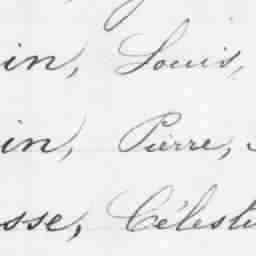 in, Louis,
in, Pierre,
sse, Célest